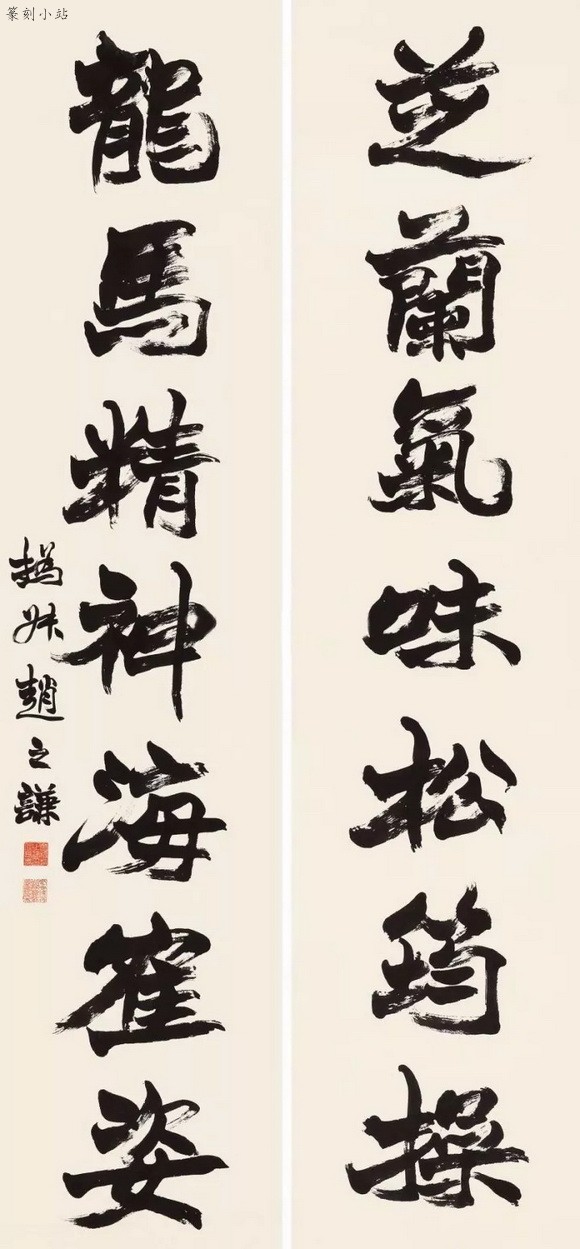 篆刻小站
芝蘭氣味松筠操
龍馬精神海寉姿
撝叔趙之謙